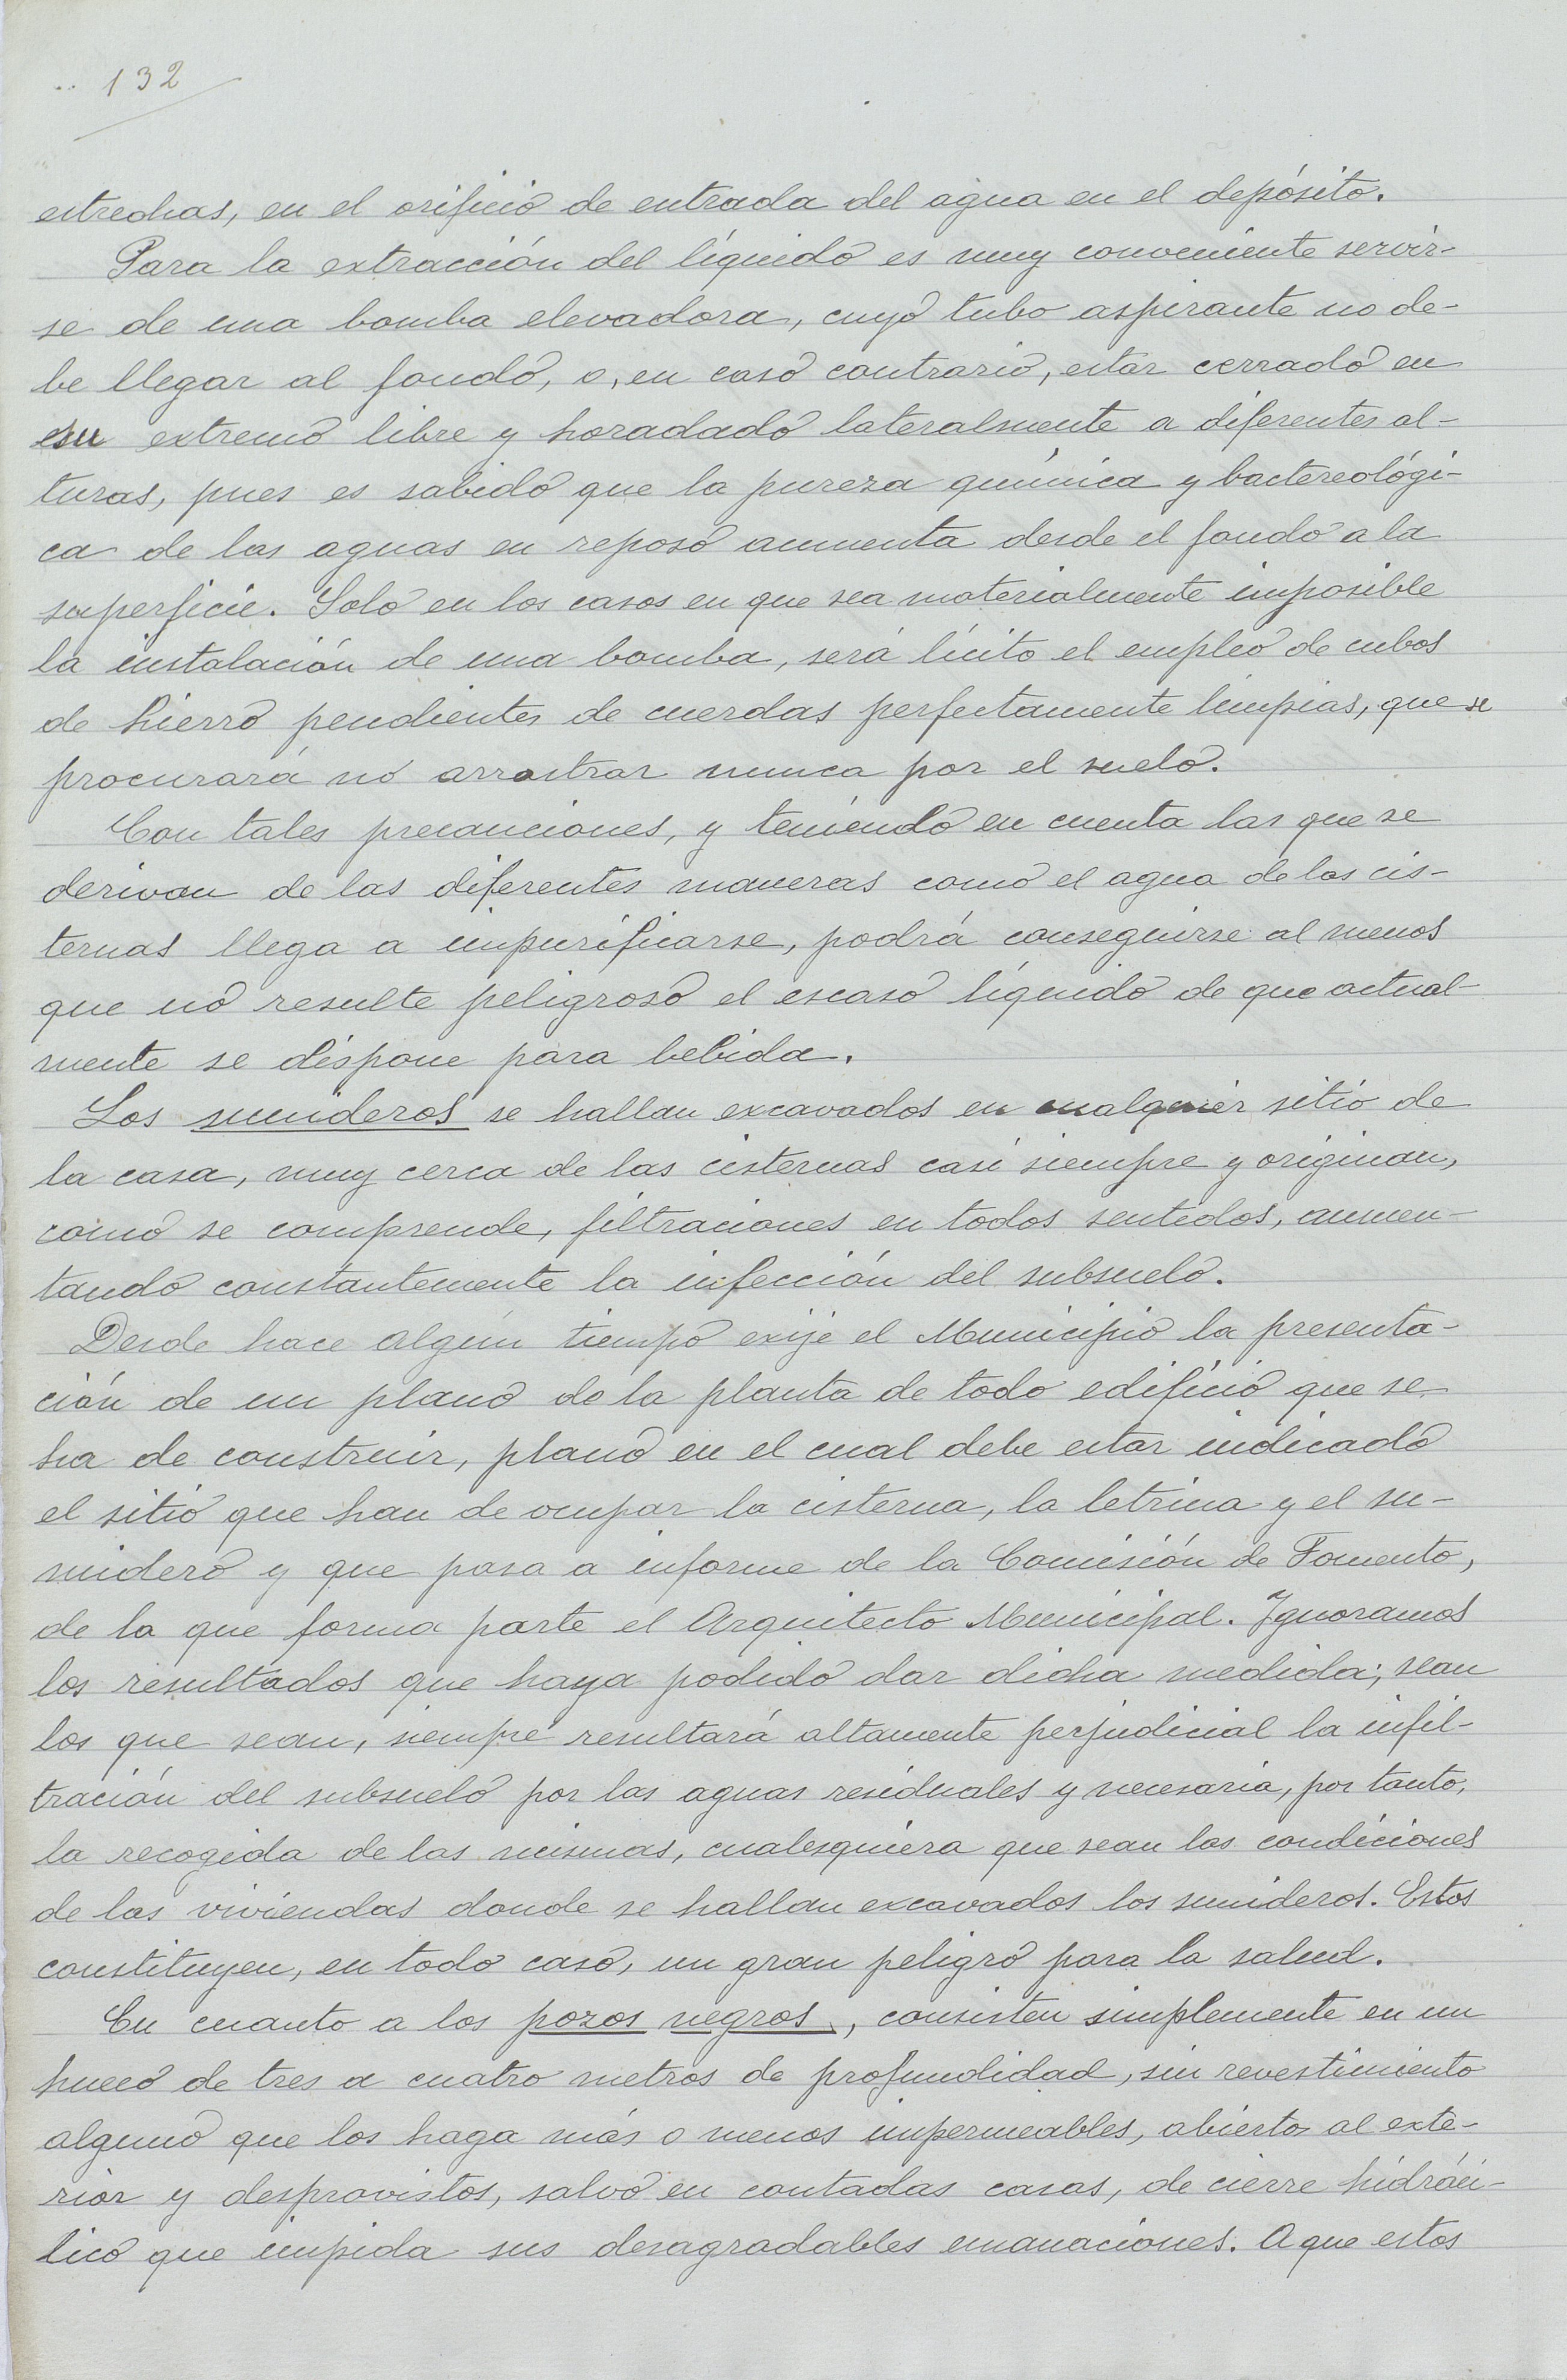 132
estrechas, en el orificio de entrada del agua en el depósito.
Para la extracción del líquido es muy conveniente servir-
se de una bomba elevadora, cuyo tubo aspirante no de-
be llegar al fondo, o, en caso contrario, estar cerrado en
su extremo libre y horadado lateralmente a diferentes al-
turas, pues es sabido que la pureza química y bactereológi-
ca de las aguas en reposo aumenta desde el fondo a la
superficie. Solo en los casos en que sea materialmente imposible
la instalación de una bomba, será lícito el empleo de cubos
de hierro pendientes de cuerdas perfectamente limpias, que se
procurará no arrastrar nunca por el suelo.
Con tales precauciones, y teniendo en cuenta las que se
derivan de las diferentes maneras como el agua de las cis-
ternas llega a impurificarse, podrá conseguirse al menos
que no resulte peligroso el escaso líquido de que actual-
mente se dispone para bebida.
Los sumideros se hallan excavados en cualquier sitio de
la casa, muy cerca de las cisternas casi siempre y originan,
como se comprende, filtraciones en todos sentidos, aumen-
tando constantemente la infección del subsuelo.
Desde hace algún tiempo exije el Municipio la presenta-
ción de un plano de la planta de todo edificio que se
ha de construir, plano en el cual debe estar indicado
el sitio que han de ocupar la cisterna, la letrina y el su-
midero y que pasa a informe de la Comisión de Fomento,
de la que forma parte el Arquitecto Municipal. Ignoramos
los resultados que haya podido dar dicha medida; sean
los que sean, siempre resultará altamente perjudicial la infil-
tración del subsuelo por las aguas residuales y necesaria, por tanto,
la recogida de las mismas, cualesquiera que sean las condiciones
de las viviendas donde se hallan excavados los sumideros. Estos
constituyen, en todo caso, un gran peligro para la salud.
En cuanto a los pozos negros, consisten simplemente en un
hueco de tres a cuatro metros de profundidad, sin revestimiento
alguno que los haga más o menos impermeables, abiertos al exte-
rior y desprovistos, salvo en contadas casas, de cierre hidráu-
lico que impida sus desagradables emanaciones. A que estos